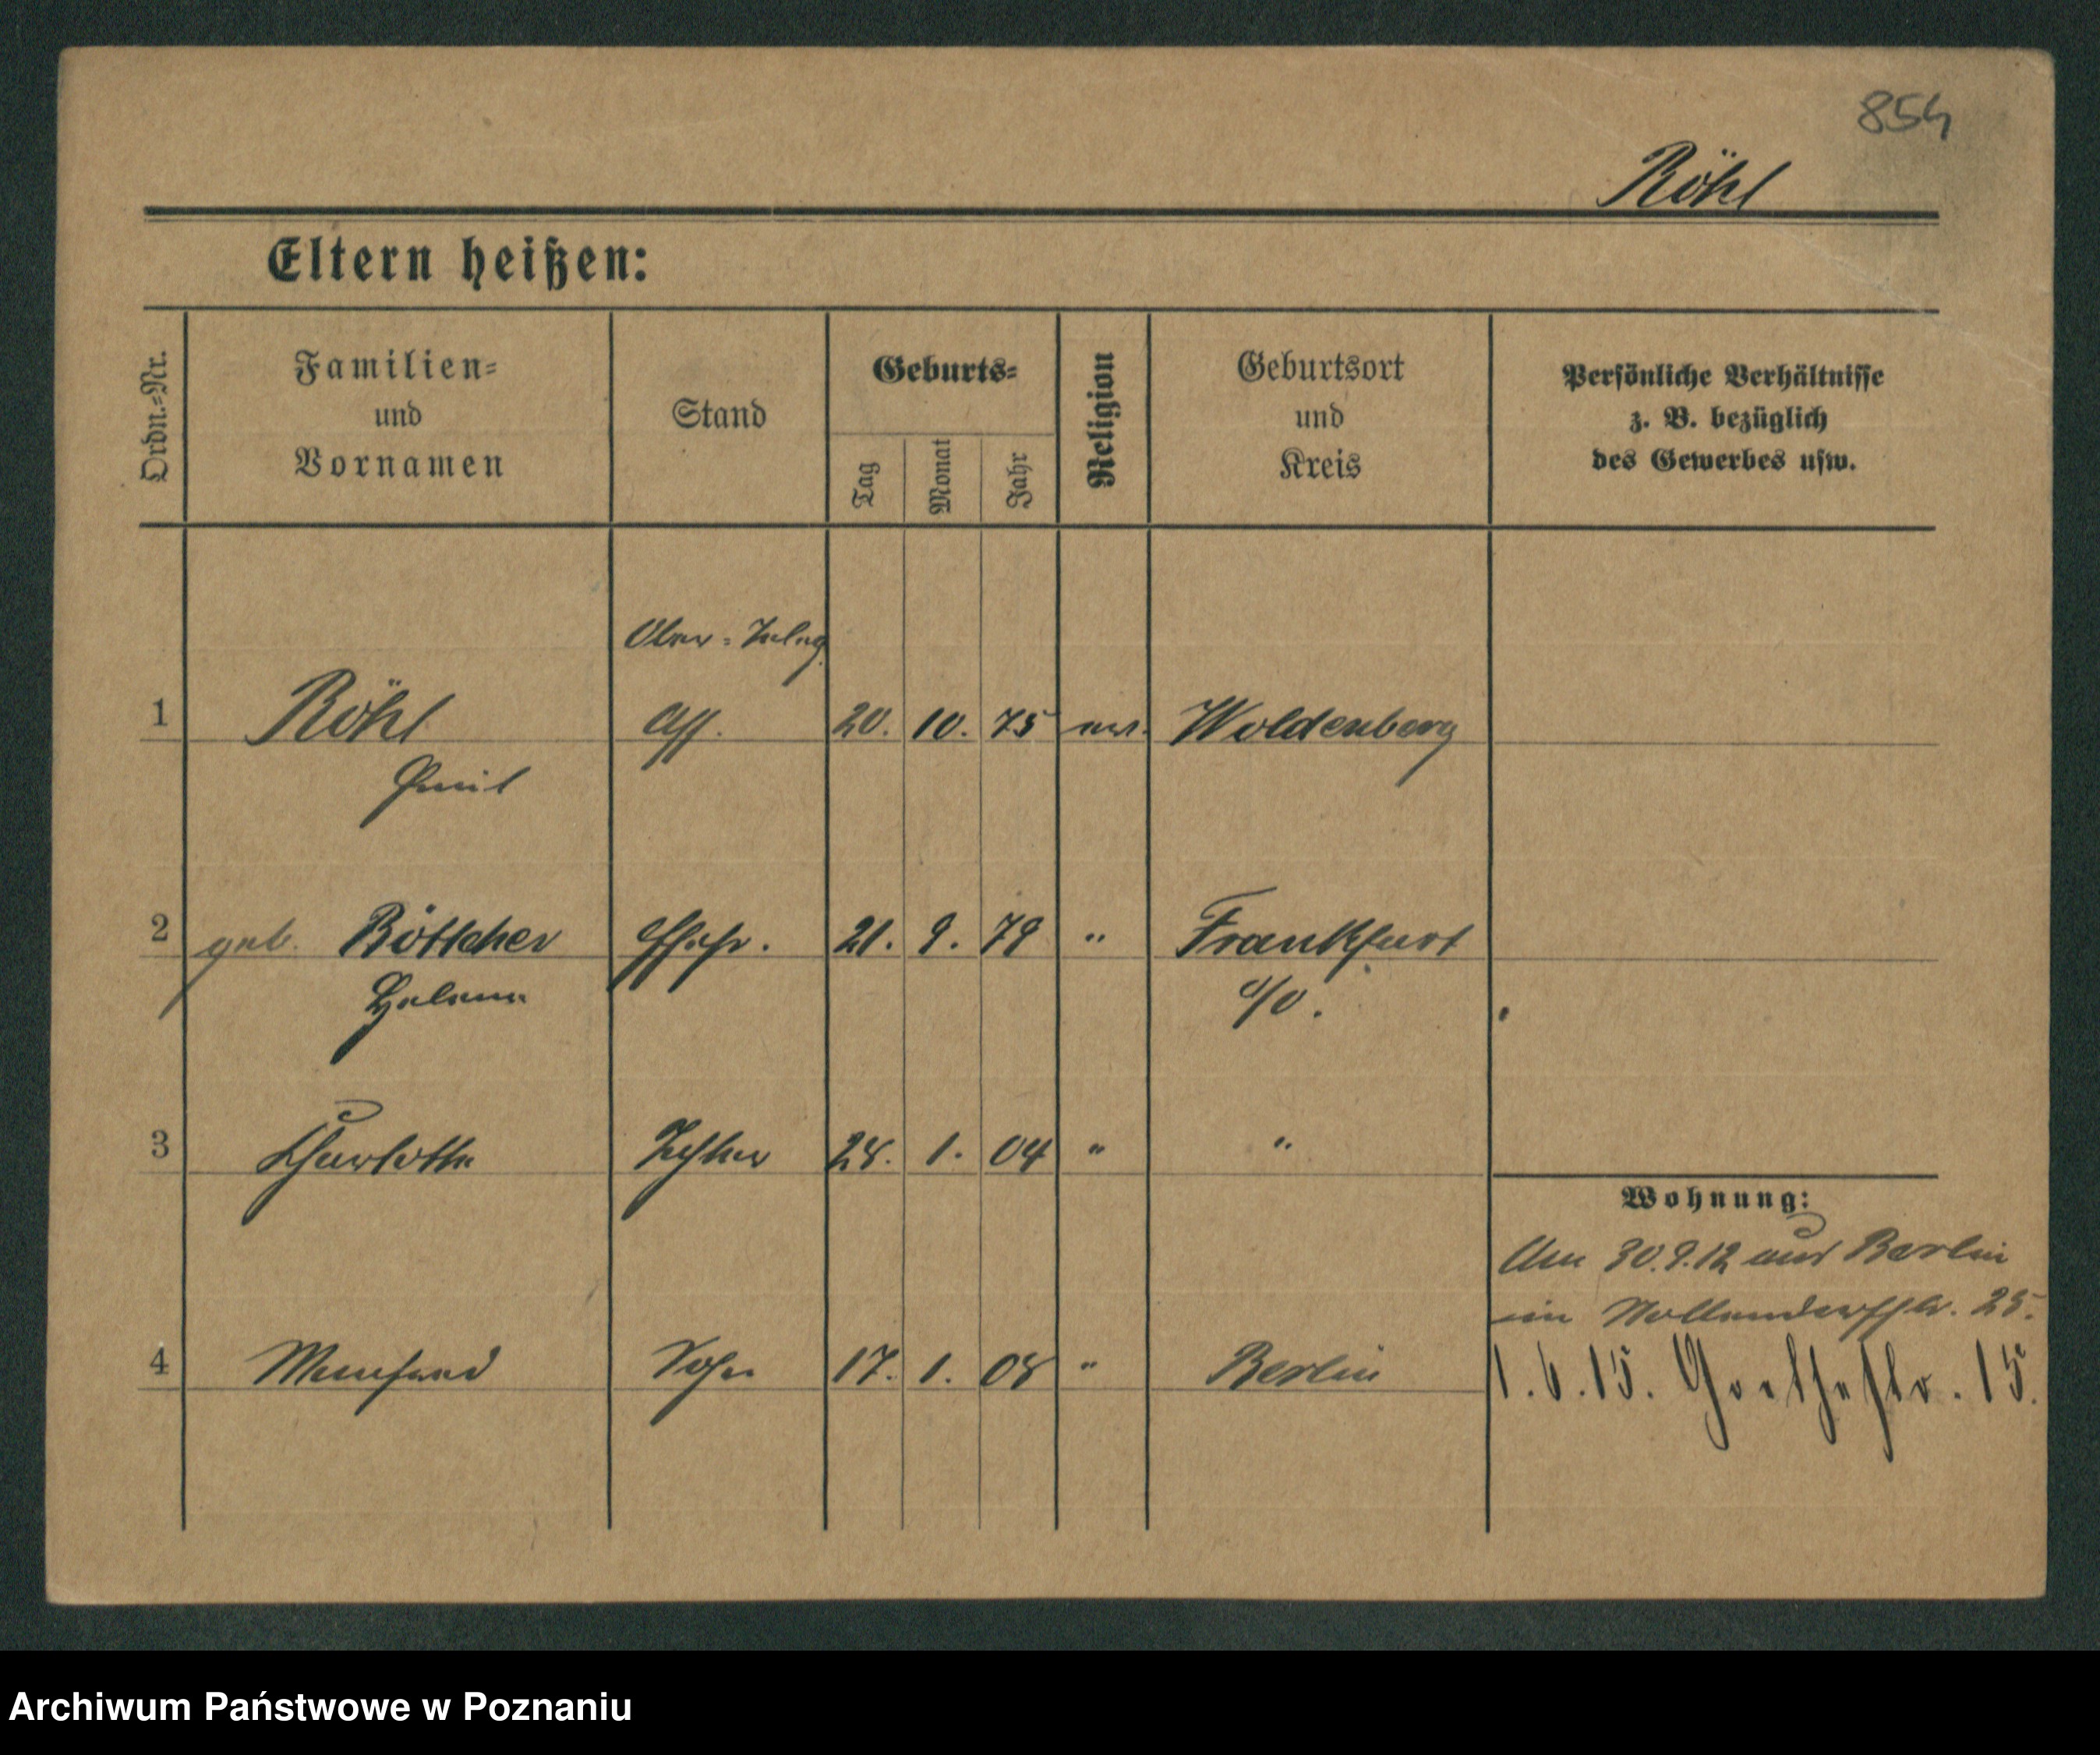 854
Röhl
Eltern heißen:
Ordn.-Nr.
Familien-
und
Vornamen
Stand
Geburts-
Tag
Monat
Jahr
Religion
Geburtsort
und
Kreis
Persönliche Verhältnisse
z. B. bezüglich
des Gewerbes usw.
Ober-Teleg.
1 Röhl Ass. 20. 10. 75 ev. Woldenberg
Emil
2 geb. Böttcher Ehefr. 21. 9. 79 " Frankfurt
Helene a/O.
3 Charlotte Tochter 28. 1. 04 " "
Wohnung:
Am 30.9.12 aus Berlin
in Nollendorfstr. 25.
4 Manfred Sohn 17. 1. 08 " Berlin
1.6.15. Goethestr. 15.
Archiwum Państwowe w Poznaniu